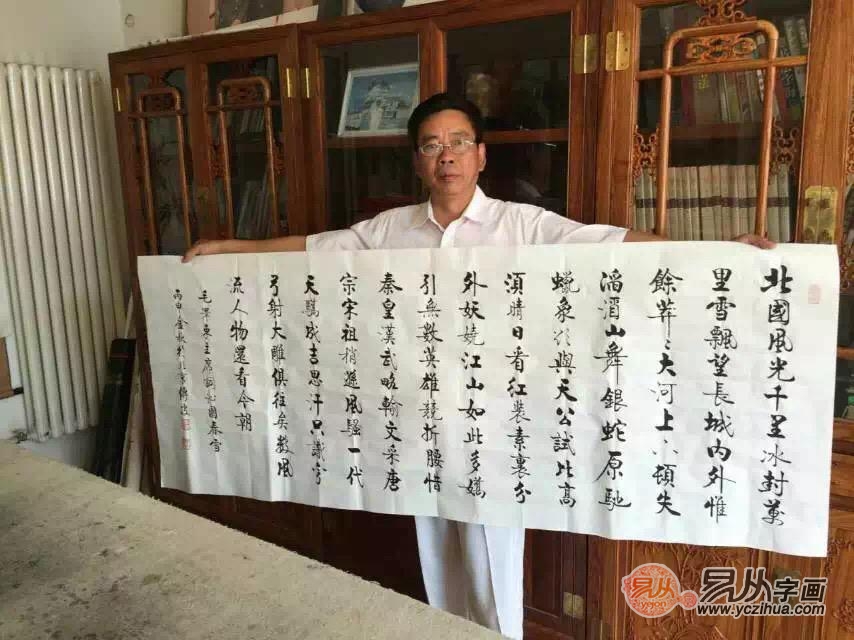 北國風光千里冰封萬
里雪飄望長城内外惟
餘莽〻大河上下頓失
滔滔山舞銀蛇原馳
蠟象欲與天公試比高
須晴日看红裝素裹分
外妖嬈江山如此多嬌
引無數英雄競折腰惜
秦皇漢武略輸文采唐
宗宋祖稍遜風騷一代
天驕成吉思汗只識彎
弓射大雕俱往矣數風
流人物還看今朝
毛澤東主席詞沁園春雪
丙申金秋於北京
易从
易从字画
www.yczihua.com